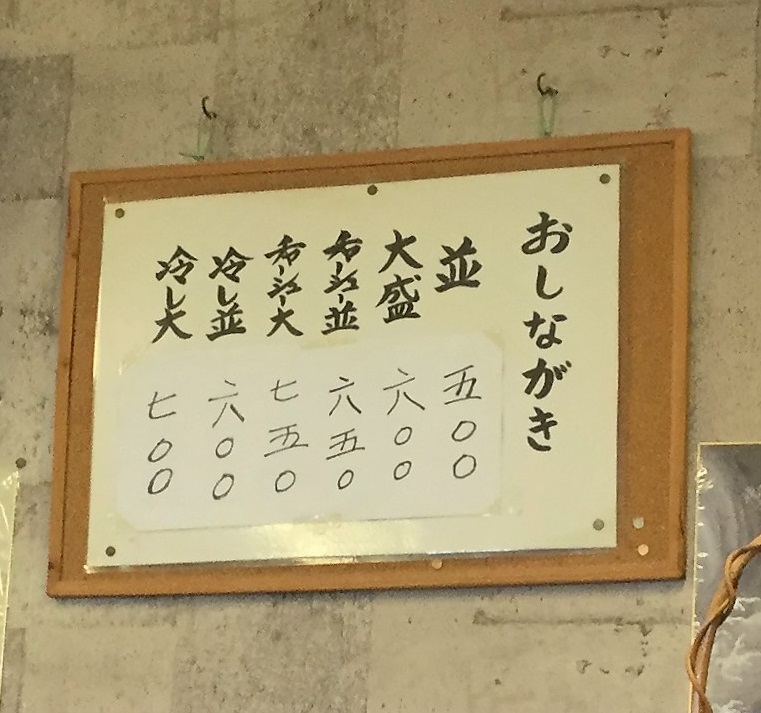 おしながき
並 五〇〇
大盛 六〇〇
チャーシュー並 六五〇
チャーシュー大 七五〇
冷し並 六〇〇
冷し大 七〇〇